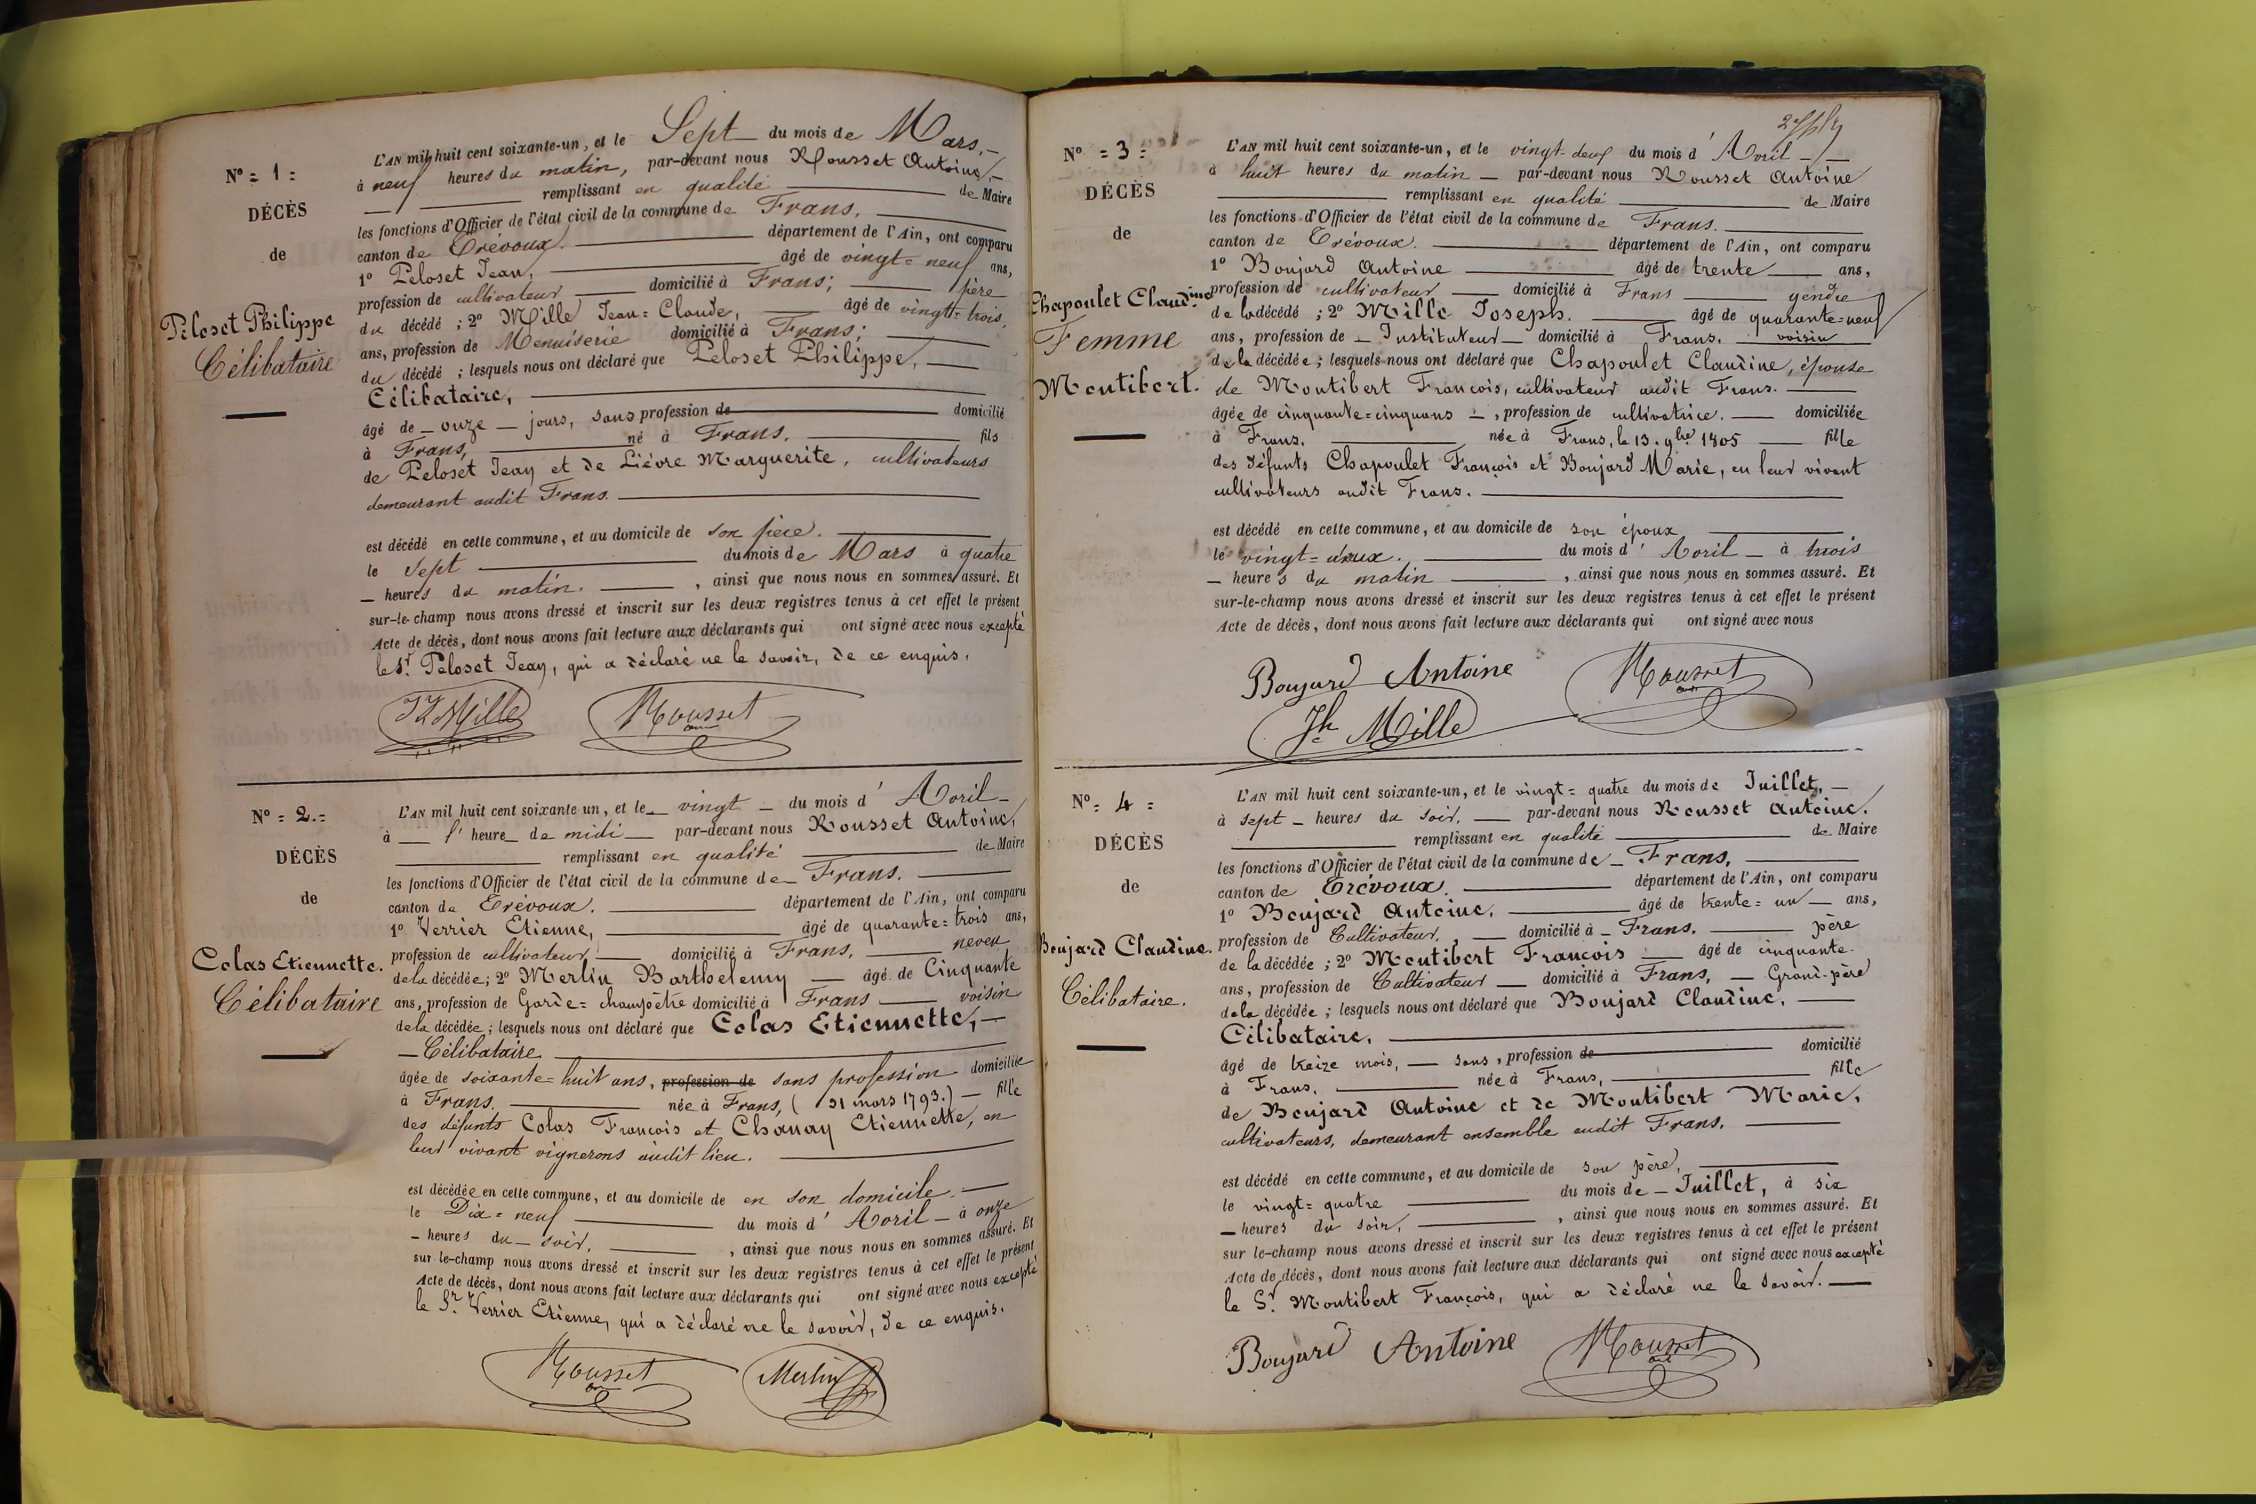 N° = 1 =
DÉCÈS
de
Peloset Philippe
Célibataire
L'AN mil huit cent soixante-un, et le Sept du mois de Mars,
à neuf heures du matin, par-devant nous Rousset Antoine,
remplissant en qualité de Maire
les fonctions d'Officier de l'état civil de la commune de Frans,
canton de Trévoux. département de l'Ain, ont comparu
1° Peloset Jean, âgé de vingt=neuf ans,
profession de cultivateur domicilié à Frans; père
du décédé ; 2° Mille Jean=Claude, âgé de vingt=trois,
ans, profession de Menuiserie domicilié à Frans;
du décédé ; lesquels nous ont déclaré que Peloset Philippe,
Célibataire,
âgé de onze jours, sans profession de domicilié
à Frans, né à Frans. fils
de Peloset Jean et de Lièvre Marguerite, cultivateurs
demeurant audit Frans.
est décédé en cette commune, et au domicile de son père.
le sept du mois de Mars à quatre
heures du matin. , ainsi que nous nous en sommes assuré. Et
sur-le-champ nous avons dressé et inscrit sur les deux registres tenus à cet effet le présent
Acte de décès, dont nous avons fait lecture aux déclarants qui ont signé avec nous excepté
le Sr. Peloset Jean, qui a déclaré ne le savoir, de ce enquis.
Mille Rousset
N° = 2. =
DÉCÈS
de
Colas Etiennette.
Célibataire
L'AN mil huit cent soixante un, et le vingt du mois d'Avril
à l'heure de midi par-devant nous Rousset Antoine,
remplissant en qualité de Maire
les fonctions d'Officier de l'état civil de la commune de Frans.
canton de Trévoux. département de l'Ain, ont comparu
1° Verrier Etienne, âgé de quarante=trois ans,
profession de cultivateur domicilié à Frans. neveu
de la décédée; 2° Merlin Barthelemy âgé de Cinquante
ans, profession de Garde=champêtre domicilié à Frans voisin
de la décédée ; lesquels nous ont déclaré que Colas Etiennette,
Célibataire
âgée de soixante=huit ans, profession de sans profession domiciliée
à Frans. née à Frans, (31 mars 1793.) fille
des défunts Colas François et Chanay Etiennette, en
leur vivant vignerons audit lieu.
est décédée en cette commune, et au domicile de en son domicile.
le Dix=neuf du mois d'Avril à onze
heures du soir. , ainsi que nous nous en sommes assuré. Et
sur le-champ nous avons dressé et inscrit sur les deux registres tenus à cet effet le présent
Acte de décès, dont nous avons fait lecture aux déclarants qui ont signé avec nous excepté
le Sr. Verrier Etienne, qui a déclaré ne le savoir, de ce enquis.
Rousset Merlin
N° = 3 =
DÉCÈS
de
Chapoulet Claudine
Femme
Montibert.
L'AN mil huit cent soixante-un, et le vingt-deux du mois d'Avril
à huit heures du matin par-devant nous Rousset Antoine
remplissant en qualité de Maire
les fonctions d'Officier de l'état civil de la commune de Frans.
canton de Trévoux. département de l'Ain, ont comparu
1° Boujard Antoine âgé de trente ans,
profession de cultivateur domicilié à Frans gendre
de la décédée ; 2° Mille Joseph. âgé de quarante=neuf
ans, profession de Instituteur domicilié à Frans. voisin
de la décédée ; lesquels nous ont déclaré que Chapoulet Claudine, épouse
de Montibert François, cultivateur audit Frans.
âgée de cinquante=cinq ans , profession de cultivatrice. domiciliée
à Frans. née à Frans, le 13. 9bre 1805 fille
des défunts Chapoulet François et Boujard Marie, en leur vivant
cultivateurs audit Frans.
est décédé en cette commune, et au domicile de son époux
le vingt=deux. du mois d'Avril à trois
heures du matin , ainsi que nous nous en sommes assuré. Et
sur-le-champ nous avons dressé et inscrit sur les deux registres tenus à cet effet le présent
Acte de décès, dont nous avons fait lecture aux déclarants qui ont signé avec nous
Boujard Antoine Rousset
Jh Mille
N° = 4 =
DÉCÈS
de
Boujard Claudine.
Célibataire.
L'AN mil huit cent soixante-un, et le vingt=quatre du mois de Juillet,
à sept heures du soir. par-devant nous Rousset Antoine.
remplissant en qualité de Maire
les fonctions d'Officier de l'état civil de la commune de Frans,
canton de Trévoux. département de l'Ain, ont comparu
1° Boujard Antoine. âgé de trente=un ans,
profession de Cultivateur. domicilié à Frans. père
de la décédée ; 2° Montibert François âgé de cinquante
ans, profession de Cultivateur domicilié à Frans, Grand-père
de la décédée ; lesquels nous ont déclaré que Boujard Claudine,
Célibataire,
âgé de treize mois, sans , profession de domicilié
à Frans. née à Frans, fille
de Boujard Antoine et de Montibert Marie,
cultivateurs, demeurant ensemble audit Frans.
est décédé en cette commune, et au domicile de son père,
le vingt=quatre du mois de Juillet, à six
heures du soir, , ainsi que nous nous en sommes assuré. Et
sur le-champ nous avons dressé et inscrit sur les deux registres tenus à cet effet le présent
Acte de décès, dont nous avons fait lecture aux déclarants qui ont signé avec nous excepté
le Sr. Montibert François, qui a déclaré ne le savoir.
Boujard Antoine Rousset